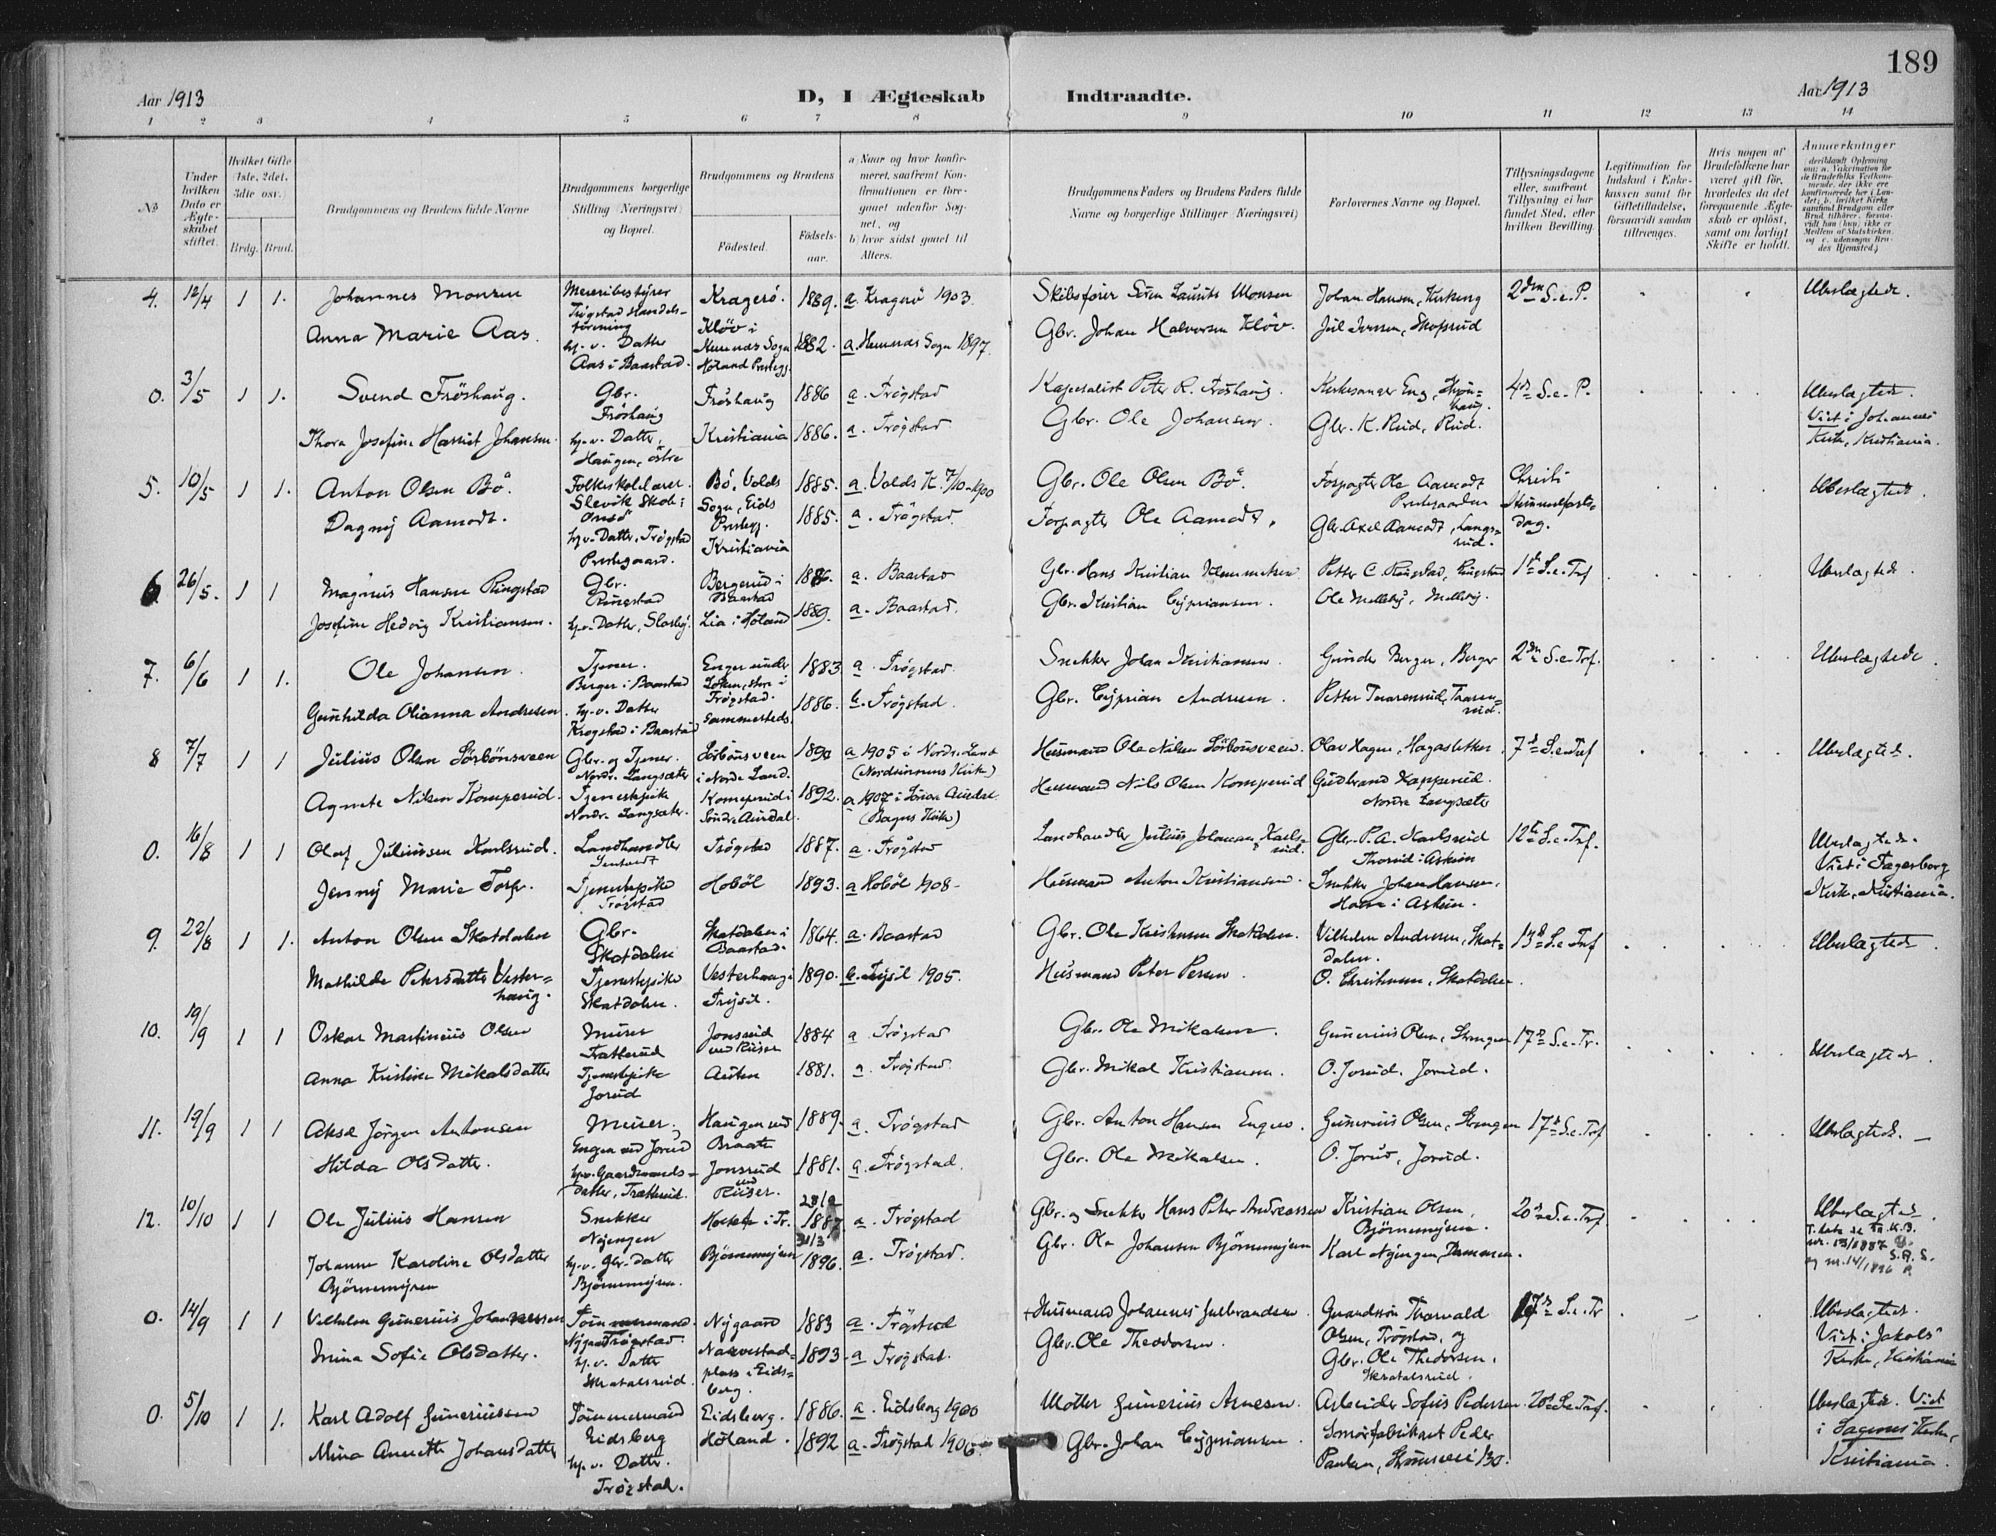 189
Aar 1913
D, I Ægteskab Indtraadte.
Aar 1913
1 2 3 4 5 6 7 8 9 10 11 12 13 14
No
Under hvilken Dato er Ægteskabet stiftet.
Hvilket Gifte (1ste, 2det, 3die osv.)
Brdg. Brud.
Brudgommens og Brudens fulde Navne
Brudgommens borgerlige Stilling (Næringsvei) og Bopæl.
Brudgommens og Brudens
Fødested.
Fødselsaar.
a) Naar og hvor konfirmeret, saafremt Konfirmationen er foregaaet udenfor Sognet, og
b) hvor sidst gaaet til Alters.
Brudgommens Faders og Brudens Faders fulde Navne og borgerlige Stillinger (Næringsvei)
Forlovernes Navne og Bopæl.
Tillysningsdagene eller, saafremt Tillysning ei har fundet Sted, efter hvilken Bevilling.
Legitimation for Indskud i Enkekassen samt for Giftetilladelse, forsaavidt saadan tiltrænges.
Hvis nogen af Brudefolkene har været gift før, hvorledes da det foregaaende Ægteskab er opløst, samt om lovligt Skifte er holdt.
Anmerkninger
4. 12/4 1 1. Johannes Monsen
Kragerö. 1889. a. Kragerö 1903.
Skibsfører Sören Laurits Monsen
Johan Hansen, Kirkeng
2den S. e. P.
Ubeslægtede.
Anna Marie Aas.
hv. v. Datter
Aas i Baastad.
Kløv i
1882. a. Hemnæs Sogn 1897.
Gbr. Johan Halvorsen Kløv.
Juul Iversen, Skofsrud
0. 3/5 1 1. Svend Frøshaug.
Gbr.
Frøshaug
Frøshaug 1886 a. Trøgstad
Peter R. Frøshaug.
4de S. e. P.
Ubeslægtede.
Viet i Johannes
Kirke, Kristiania.
Thora Josefine Harriet Johansen
Haugen, østre
Kristiania 1886. a. Trøgstad
Gbr. Ole Johansen.
Gbr. K. Rud, Rud.
5. 10/5 1 1. Anton Olsen Bö.
Folkeskolelærer
Bö, Volds
Sogn, Eids
Prstegj.
1885. a. Volds K. 7/10-1900
Gbr. Ole Olsen Bö.
Forpagter Ole Aamodt
Christi
Himmelfarts-
dag.
Ubeslægtede.
Dagny Aamodt.
hv. v. Datter, Trøgstad
Kristiania
1885. a. Trøgstad.
Forpagter Ole Aamodt.
Gbr. Axel Aamodt, Langs-
rud.
6. 26/5. 1 1 Magnus Hansen Ringstad
Gbr.
Ringstad
Bergerud i
Baastad
1886. a. Baastad
Gbr. Hans Kristian Klemmetsen
Petter C. Ringstad, Ringstad
1ste S. e. Trf
Ubeslægtede.
Josefine Hedvig Kristiansen.
Lia i Höland 1889. a. Baastad.
Gbr. Kristian Cypriansen.
Ole Melleby, Melleby.
7. 6/6 1 1. Ole Johansen.
Tjener.
Berger i Baastad
1883 a. Trøgstad.
Snekker Johan Kristiansen.
Gunder Berger, Berger
2den S. e. Trf.
Ubeslægtede.
Gunhilda Olianna Andresen
hv. v. Datter
Krogstad i Baastad
sammesteds.
1886. b. Trøgstad.
Gbr. Cyprian Andresen.
8 7/7 1 1 Julius Olsen Sörbönsveen
Gbr. og Tjener.
Nordr. Langsæter
Sörbönsveen
i Nordre Land.
1890 a 1905 i Nordre Land
(Nordsinnens Kirke)
Husmand Ole Nilsen Sörbönsveen.
Olav Hagen, Hagasletten
7de S. e. Trf
Ubeslægtede.
Agnete Nilsen Komperud.
Tjenestpike
Nordr. Langsæter.
Komperud i
Søndre Aurdal.
1892. a 1907 i Søndre Aurdal.
(Bagns Kirke)
Husmand Nils Olsen Komperud
Gudbrand Kapperud.
Nordre Langsæter
0. 16/8 1 1 Olaf Juliussen Karlsrud.
Landhandler
Trøgstad 1887. a. Trøgstad
Landhandler Julius Johansen, Karls-
rud.
Gbr. P. A. Karlsrud
12te S. e. Trf.
Ubeslægtede.
Viet i Fagerborg
Kirke, Kristiania.
Jenny Marie Torp.
Tjenestepike
Trøgstad
Hobøl 1893. a Hobøl 1908.
Husmand Anton Kristiansen.
Snekker Johan Hansen,
9. 22/8 1 1. Anton Olsen Skatdalen
Gbr.
Skatdalen
Skatdalen i
Baastad.
1864. a. Baastad
Gbr. Ole Kristensen Skatdalen.
Vilhelm Andresen, Skat-
dalen.
13de S. e. Trf
Ubeslægtede.
Mathilde Petersdatter Vester-
haug.
Tjenestepike
Skatdalen.
Vesterhaug i
Trysil.
1890. b. Trysil 1905.
Husmand Peter Persen.
O. Christensen, Skatdalen.
10. 19/9 1 1 Oskar Martinius Olsen
Murer
Trætterud
Jonsrud
ved Riiser
1884 a Trøgstad
Gbr. Ole Mikalsen.
Gunerius Olsen, Skrengen
17de S. e. Tr.
Ubeslægtede.
Anna Kristine Mikalsdatter
Tjenestepike
Jorud
1881. a. Trøgstad.
Gbr. Mikal Kristiansen.
O. Jorud, Jorud.
11. 19/9 1 1 Aksel Jørgen Antonsen
Murer.
Engen ved Jorud
Haugen ved
Braate
1889. a. Trøgstad
Gbr. Anton Hansen Engen.
Gunerius Olsen, Skrengen
17de S. e. Trf
Ubeslægtede.
Hilda Olsdatter.
hv. v. Gaardmands-
datter, Trætterud.
Jonsrud
ved
Riiser.
1881. a. Trøgstad.
Gbr. Ole Mikalsen.
O. Jorud, Jorud.
12. 10/10 1 1 Ole Julius Hansen
Snekker
Nyengen
1887 a. Trøgstad
Gbr. og Snekker Hans Peter Andreassen
Kristian Olsen,
Bjørnemyren.
20de S. e. Trf
Ubeslægtede.
Johanne Karoline Olsdatter
Bjørnemyren
hv. v. Gbr. datter
Bjørnemyren.
Bjørnemyren
31/3
1896. a. Trøgstad.
Gbr. Ole Johansen Bjørnemyren
Karl Nyengen
0. 14/9 1 1 Vilhelm Gunerius Johannessen
Tömmermand
Nygaard Trøgstad.
Nygaard 1883 a. Trøgstad
Husmand Johannes Gulbrandsen.
Thorvald
Olsen, Trøgstad, og
17de S. e. Tr
Ubeslægtede.
Viet i Jakobs
Kirke, Kristiania
Mina Sofie Olsdatter.
hv. v. Datter
plass i Eids-
berg.
1893. a Trøgstad.
Gbr. Ole Theodorsen.
Gbr. Ole Thedorsen.
0. 5/10 1 1. Karl Adolf Gunerius sen
Tömmermand
Eidsberg
Eidsberg. 1886. a. Eidsberg 1900
Møller Gunerius Arnesen.
Arbeider Sofus Pedersen.
20de S. e. Trf.
Ubeslægtede. Viet
i Sagenes Kirke,
Kristiania.
Mina Annette Johansdatter
hv. v. Datter.
Trøgstad.
Höland. 1892 a. Trøgstad 1906
Gbr. Johan Cypriansen.
Smørfabrikant Peder
Paulsen